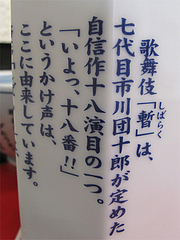 歌舞伎「暫」は、
しばらく
七代目市川団十郎が定めた
自信作十八演目の一つ。
「いよっ、十八番!!」
というかけ声は、
ここに由来しています。